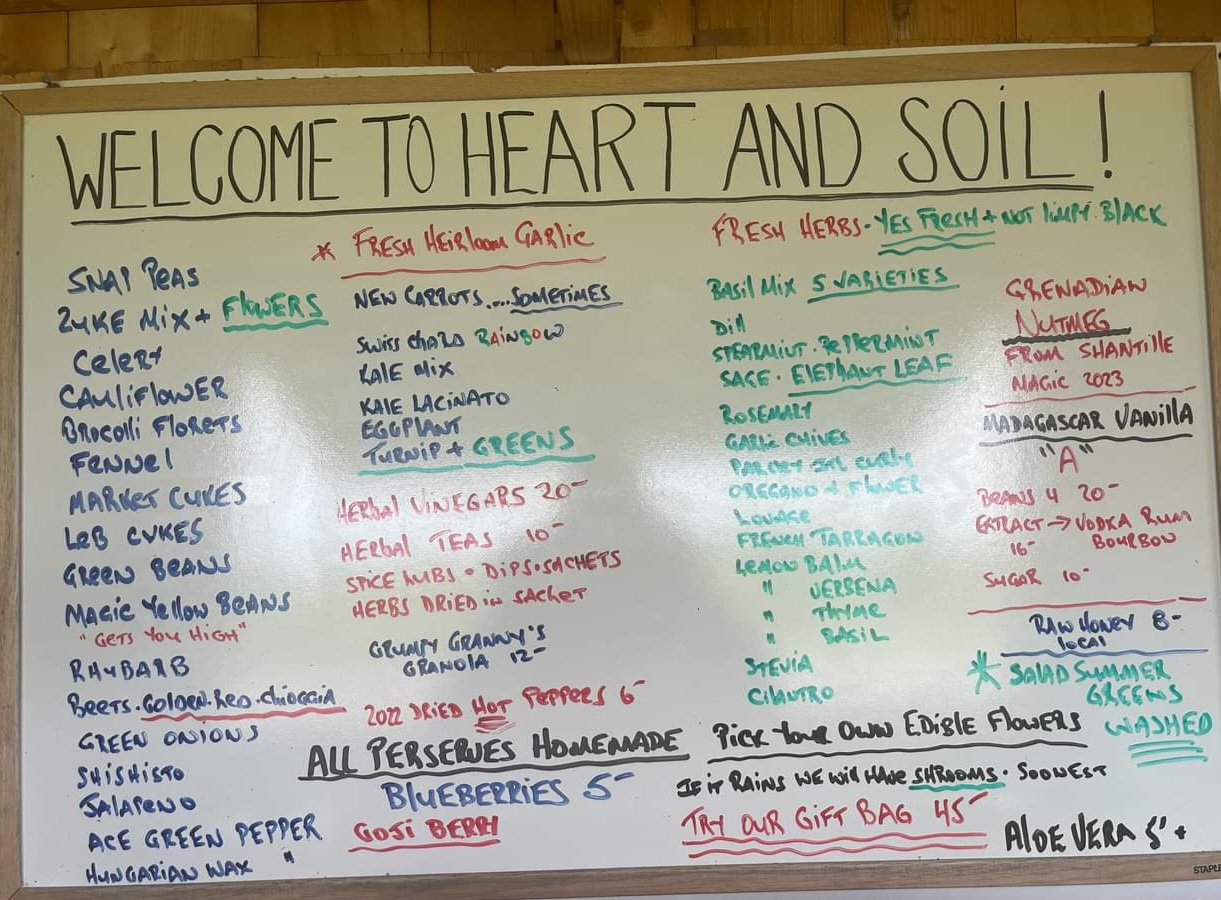 WELCOME TO HEART AND SOIL!
SNAP PEAS
ZUKE MIX + FLOWERS
CELERY
CAULIFLOWER
BROCOLLI FLORETS
FENNEL
MARKET CUKES
LEB CUKES
GREEN BEANS
MAGIC YELLOW BEANS
"GETS YOU HIGH"
RHUBARB
BEETS · GOLDEN · RED · CHIOGGIA
GREEN ONIONS
SHISHISTO
JALAPENO
ACE GREEN PEPPER
HUNGARIAN WAX "
* FRESH HEIRLOOM GARLIC
NEW CARROTS....SOMETIMES
SWISS CHARD RAINBOW
KALE MIX
KALE LACINATO
EGGPLANT
TURNIP + GREENS
HERBAL VINEGARS 20-
HERBAL TEAS 10-
SPICE RUBS · DIPS · SACHETS
HERBS DRIED IN SACHET
GRUMPY GRANNY'S
GRANOLA 12-
2022 DRIED HOT PEPPERS 6-
ALL PERSERVES HOMEMADE
BLUEBERRIES 5-
GOJI BERRY
FRESH HERBS - YES FRESH + NOT LIMPY BLACK
BASIL MIX 5 VARIETIES
DILL
SPEARMINT · PEPPERMINT
SAGE · ELEPHANT LEAF
ROSEMARY
GARLIC CHIVES
PARSLEY ITL CURLY
OREGANO + FLOWER
LOVAGE
FRENCH TARRAGON
LEMON BALM
" VERBENA
" THYME
" BASIL
STEVIA
CILANTRO
GRENADIAN
NUTMEG
FROM SHANTILLE
MAGIC 2023
MADAGASCAR VANILLA
"A"
BEANS 4 20-
EXTRACT → VODKA RUM
16- BOURBON
SUGAR 10-
RAW HONEY 8-
LOCAL
* SALAD SUMMER
GREENS
WASHED
PICK YOUR OWN EDIBLE FLOWERS
IF IT RAINS WE WILL HAVE SHROOMS · SOONEST
TRY OUR GIFT BAG 45-
ALOE VERA 5' +
STAPLE